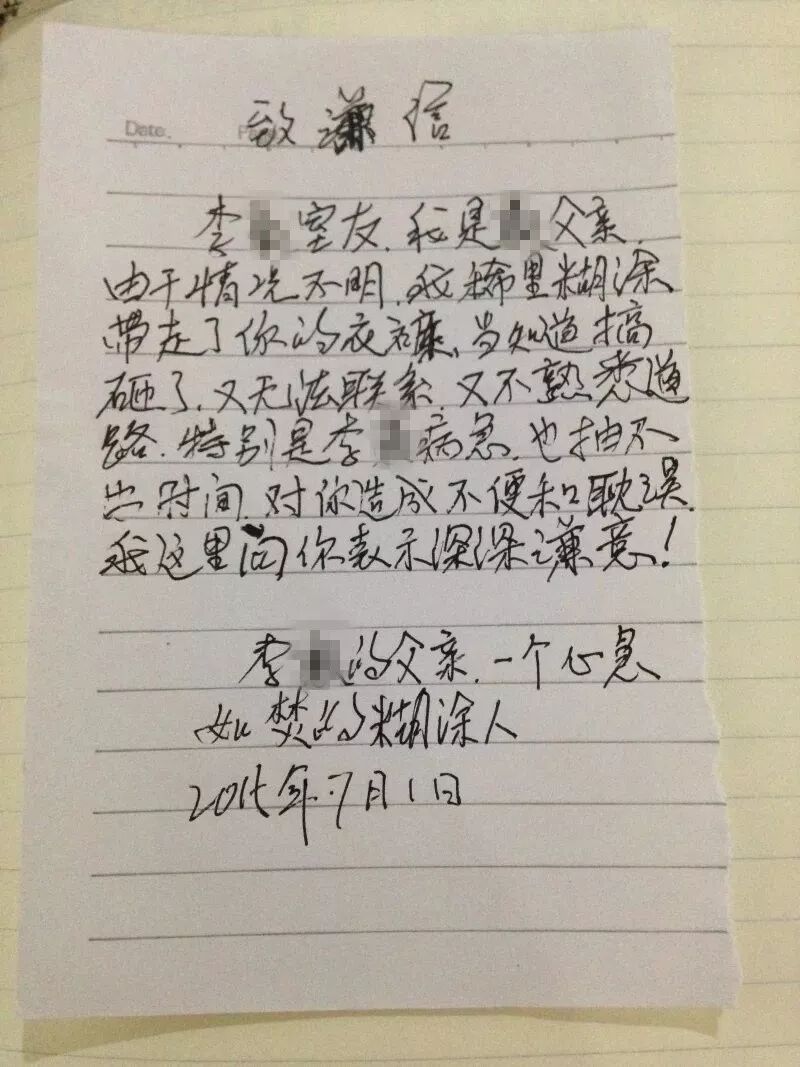 Date.
致谦信
李 室友,我是 父亲,
由于情况不明,我稀里糊涂
带走了你的衣裤,当知道搞
砸了,又无法联系,又不熟悉道
路.特别是李 病急,也抽不
出时间,对你造成不便和耽误.
我这里向你表示深深谦意!
李 的父亲,一个心急
如焚的糊涂人
2015年.7月1日